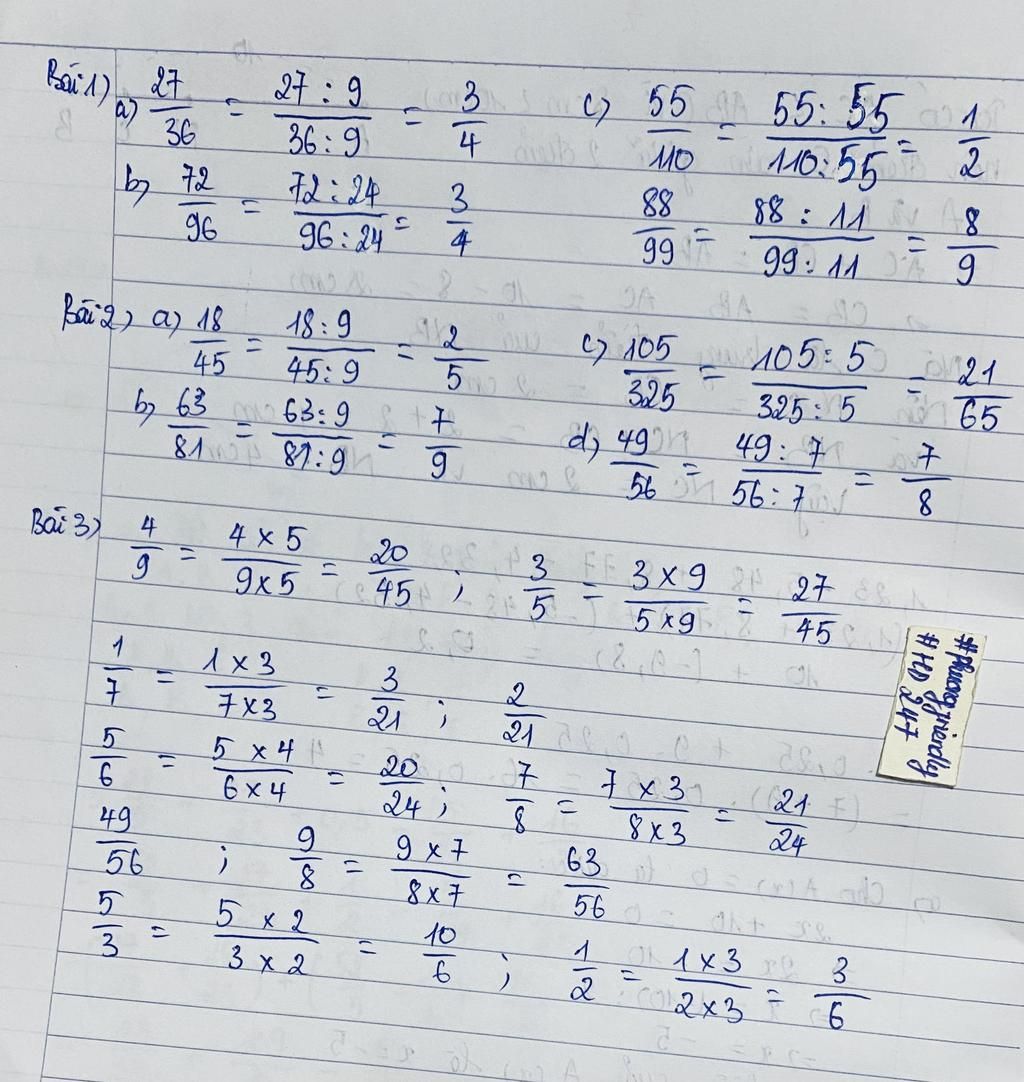 Bài 1) a) 27/36 = 27 : 9/36 : 9 = 3/4 c) 55/110 = 55 : 55/110 : 55 = 1/2
b) 72/96 = 72 : 24/96 : 24 = 3/4 88/99 = 88 : 11/99 : 11 = 8/9
Bài 2) a) 18/45 = 18 : 9/45 : 9 = 2/5 c) 105/325 = 105 : 5/325 : 5 = 21/65
b) 63/81 = 63 : 9/81 : 9 = 7/9 d) 49/56 = 49 : 7/56 : 7 = 7/8
Bài 3) 4/9 = 4 × 5/9 × 5 = 20/45 ; 3/5 = 3 × 9/5 × 9 = 27/45
1/7 = 1 × 3/7 × 3 = 3/21 ; 2/21
5/6 = 5 × 4/6 × 4 = 20/24 ; 7/8 = 7 × 3/8 × 3 = 21/24
49/56 ; 9/8 = 9 × 7/8 × 7 = 63/56
5/3 = 5 × 2/3 × 2 = 10/6 ; 1/2 = 1 × 3/2 × 3 = 3/6
#HD 247